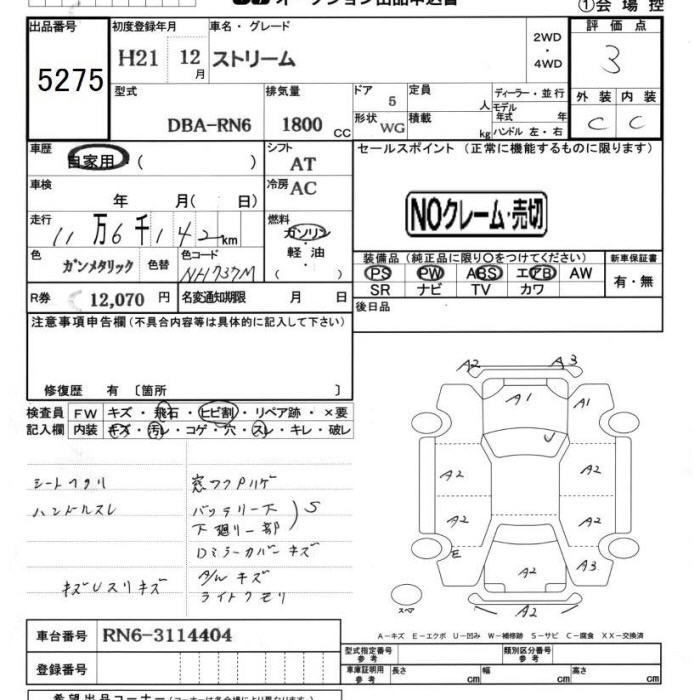 オークション出品申込書
①会場控
出品番号
5275
初度登録年月
H21 12月
車名・グレード
ストリーム
2WD
・
4WD
評価点
3
型式
DBA-RN6
排気量
1800 CC
ドア 5
形状 WG
定員 人
積載 kg
ディーラー・並行
モデル年式 年
ハンドル 左・右
外装 内装
C C
車歴
自家用 ( )
シフト AT
セールスポイント (正常に機能するものに限ります)
車検 年 月( 日)
冷房 AC
NOクレーム・売切
走行
11万6千142km
燃料
ガソリン
軽油
( )
色 ガンメタリック 色替
色コード NH737M
装備品 (純正品に限り○をつけてください)
PS PW ABS エアB AW
SR ナビ TV カワ
新車保証書
有・無
R券 12,070 円
名変通知期限 月 日
後日品
注意事項申告欄(不具合内容等は具体的に記入して下さい)
修復歴 有 〔箇所 〕
検査員記入欄
FW キズ・飛石・ヒビ割・リペア跡・×要
内装 キズ・汚レ・コゲ・穴・スレ・キレ・破レ
シートヘタリ
ハンドルスレ
窓フクPリゲ
バッテリー下
下廻リ一部
S
Dミラーカバーキズ
キズUスリキズ
A/Wキズ
ライトクモリ
A2 A3
A1 A1
A2 A2
A2 A2 A2
E A2 A3
A2
スペア
A−キズ E−エクボ U−凹み W−補修跡 S−サビ C−腐食 XX−交換済
車台番号 RN6-3114404
登録番号
型式指定番号参考
類別区分番号参考
車庫証明用参考 長さ cm 幅 cm 高さ cm
希望出品コーナー